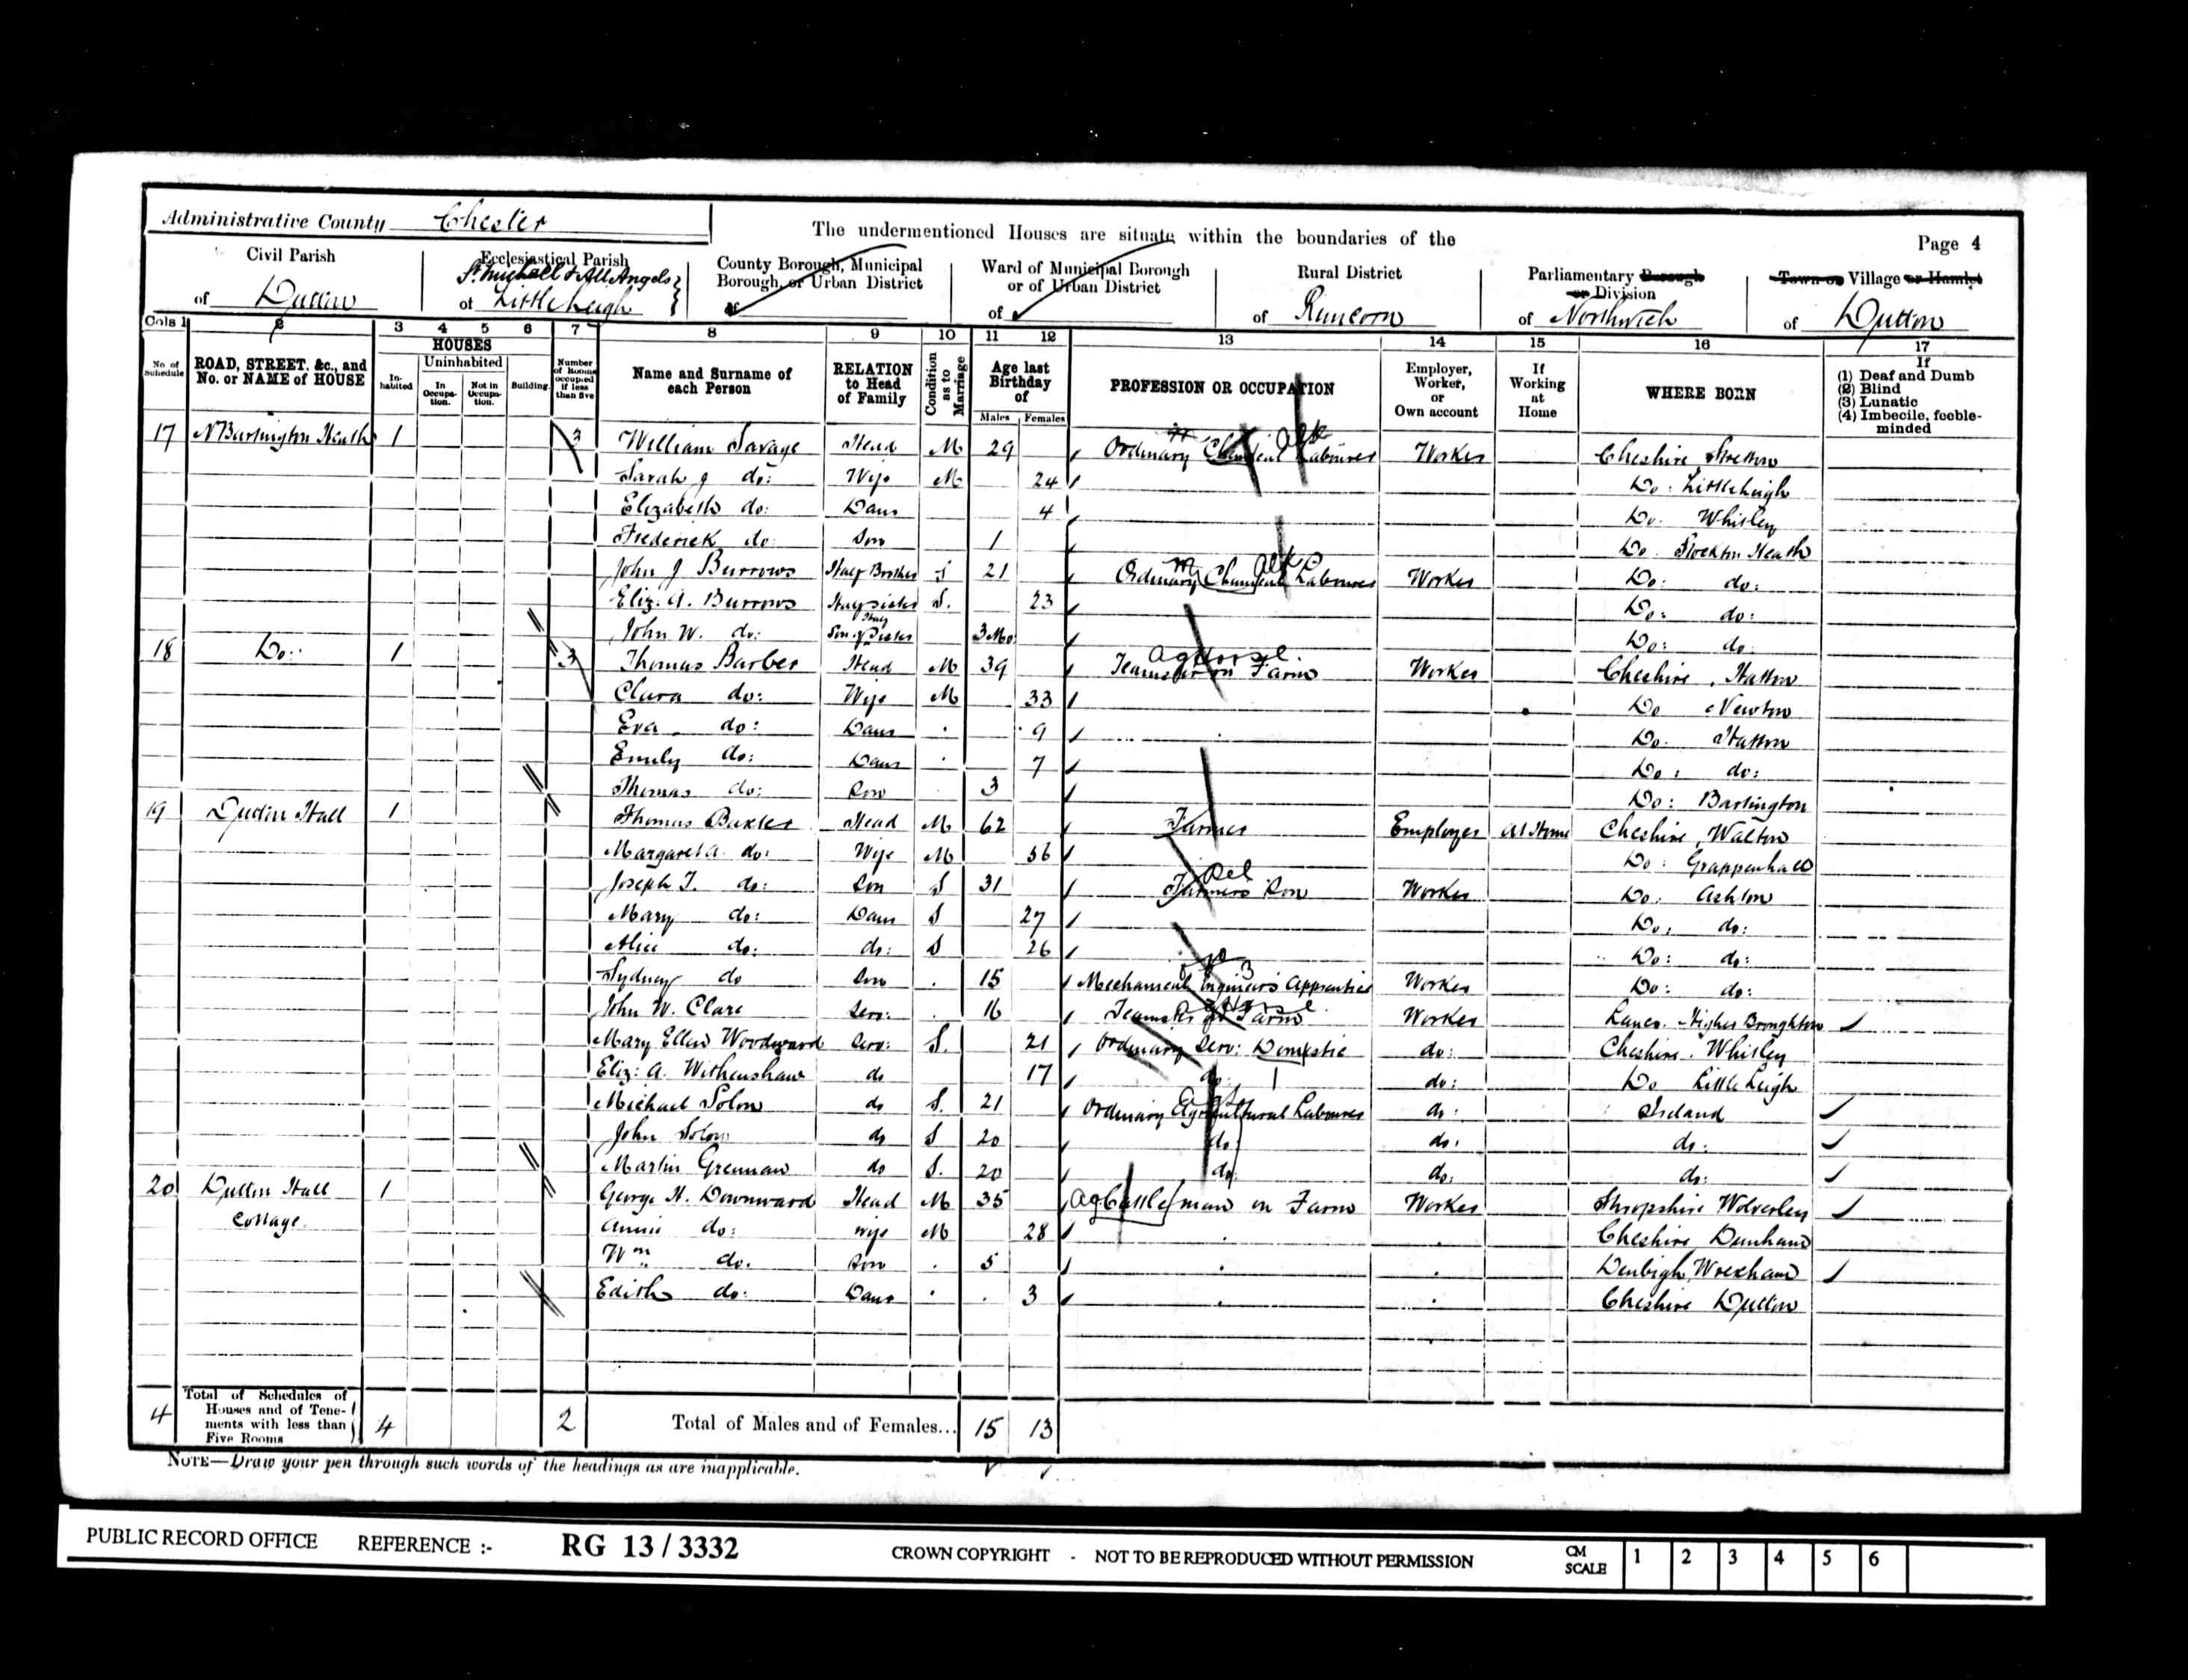 Administrative County Chester
The undermentioned Houses are situate within the boundaries of the
Page 4
Civil Parish of Dutton
Ecclesiastical Parish St. Michael & All Angels of Little Leigh
County Borough, Municipal Borough, or Urban District of
Ward of Municipal Borough or of Urban District of
Rural District of Runcorn
Parliamentary Borough or Division of Northwich
Town or Village or Hamlet of Dutton
Cols 1 2 3 4 5 6 7 8 9 10 11 12 13 14 15 16 17
No of Schedule
ROAD, STREET, &c., and No. or NAME of HOUSE
HOUSES
Inhabited
Uninhabited
In Occupation.
Not in Occupation.
Building.
Number of Rooms occupied if less than five
Name and Surname of each Person
RELATION to Head of Family
Condition as to Marriage
Age last Birthday of
Males Females
PROFESSION OR OCCUPATION
Employer, Worker, or Own account
If Working at Home
WHERE BORN
If
(1) Deaf and Dumb
(2) Blind
(3) Lunatic
(4) Imbecile, feeble-minded
17 Bartington Heath 1 3 William Savage Head M 29 Ordinary Chemical Labourer Alk Worker Cheshire Stretton
Sarah J do: Wife M 24 Do: Little Leigh
Elizabeth do: Daur 4 Do. Whitley
Frederick do: Son 1 Do. Stockton Heath
John J Burrows Half Brother S 21 Ordinary Chemical Labourer Alk Worker Do: do:
Eliz. A. Burrows Half sister S. 23 Do: do:
John W. do: Son of Half Sister 3 Mo. Do: do.
18 Do: 1 3 Thomas Barber Head M 39 Teamster on Farm Ag Horse Worker Cheshire, Hatton
Clara do: Wife M 33 Do Newton
Eva do: Daur 9 Do. Hatton
Emily do: Daur 7 Do: do:
Thomas do: Son 3 Do: Bartington
19 Dutton Hall 1 Thomas Baxter Head M 62 Farmer Employer At Home Cheshire, Walton
Margaret A. do: Wife M 56 Do: Grappenhall
Joseph T. do: Son S 31 Farmers Son Rel Worker Do: Ashton
Mary do: Daur S 27 Do: do:
Alice do: do: S 26 Do: do:
Sydney do Son 15 Mechanical Engineers Apprentice Worker Do: do:
John W. Clare Serv: 16 Teamster on Farm Worker Lancs. Higher Broughton
Mary Ellen Woodward Serv: S. 21 Ordinary Serv: Domestic do: Cheshire. Whitley
Eliz: A. Withenshaw do 17 do: do: Do Little Leigh
Michael Solon do S. 21 Ordinary Agricultural Labourer do: Ireland
John Solon do S 20 do: do: do:
Martin Grennan do S. 20 do: do: do:
20 Dutton Hall 1 George H. Downward Head M 35 Ag Cattleman on Farm Worker Shropshire Wolverley
Cottage. Annie do: Wife M 28 Cheshire Dunham
Wm. do. Son 5 Denbigh, Wrexham
Edith do: Daur 3 Cheshire Dutton
4 Total of Schedules of Houses and of Tenements with less than Five Rooms 4 2 Total of Males and of Females... 15 13
NOTE—Draw your pen through such words of the headings as are inapplicable.
PUBLIC RECORD OFFICE REFERENCE :- RG 13 / 3332 CROWN COPYRIGHT - NOT TO BE REPRODUCED WITHOUT PERMISSION CM SCALE 1 2 3 4 5 6